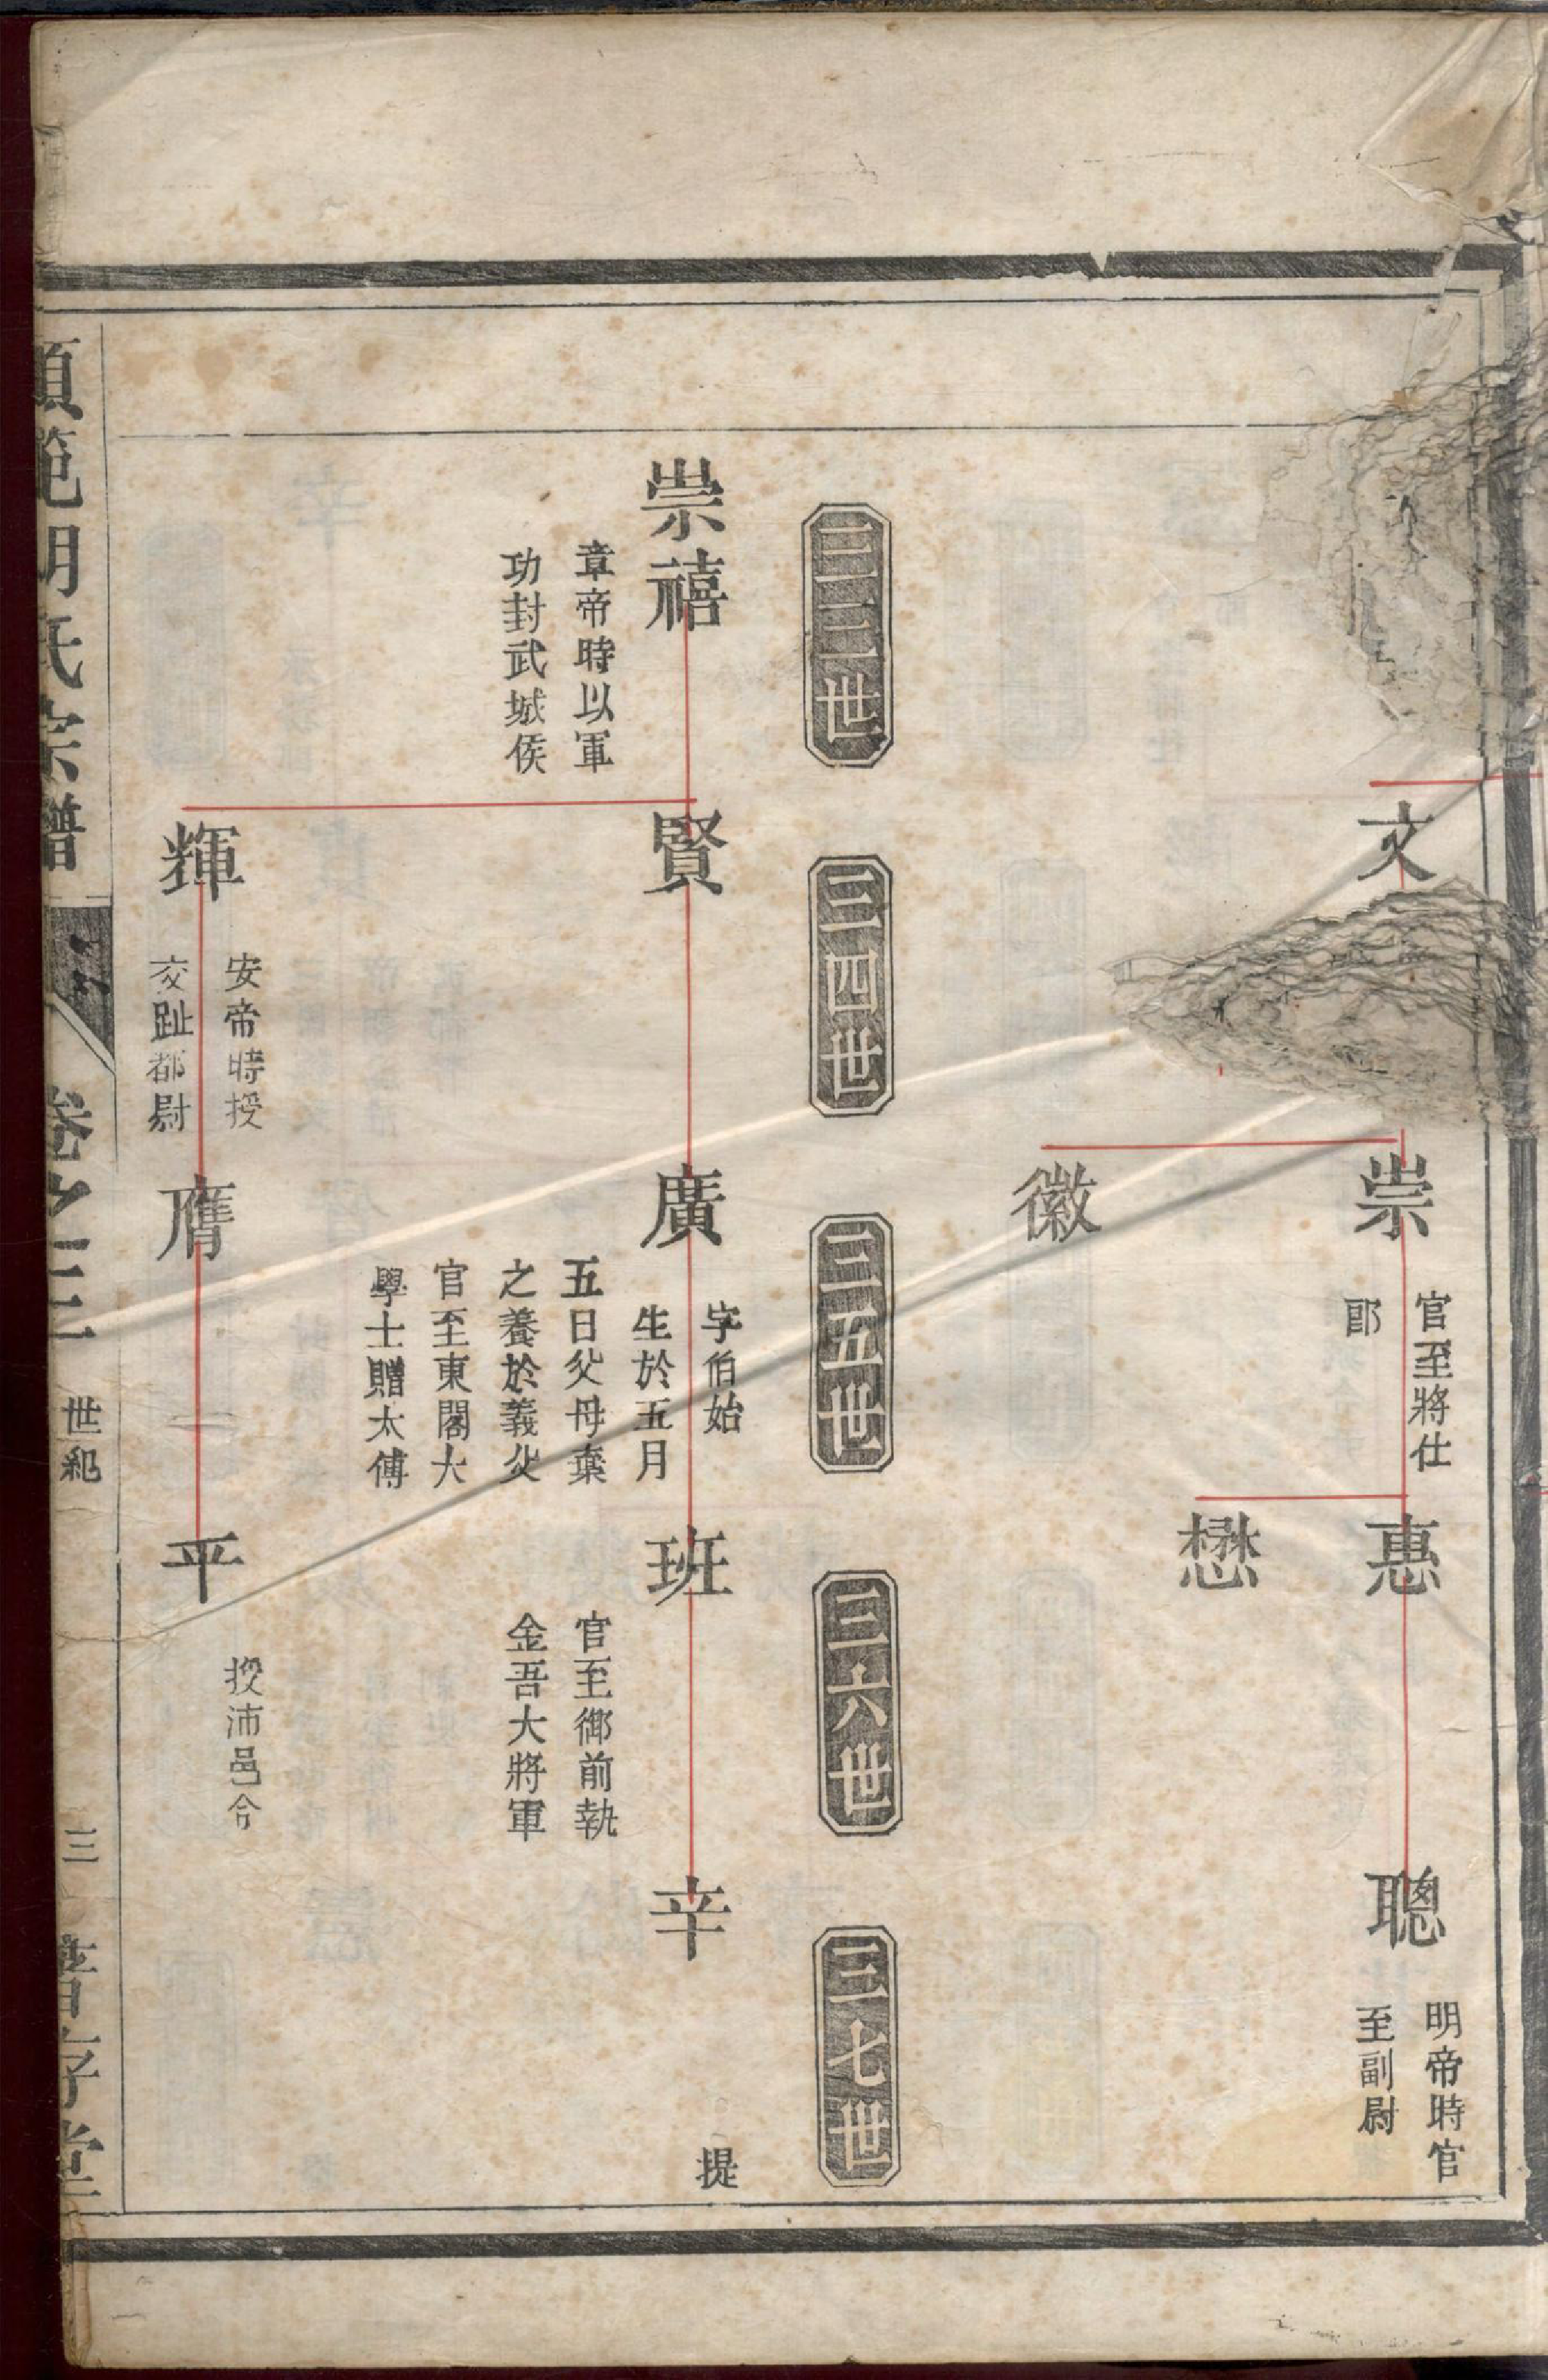 文
崇
官至將仕
郎
徽
惠
懋
聰
明帝時官
至副尉
三三世
三四世
三五世
三六世
三七世
崇禧
章帝時以軍
功封武城侯
賢
廣
字伯始
生於五月
五日父母棄
之養於義父
官至東閣大
學士贈太傅
班
官至御前執
金吾大將軍
辛
提
輝
安帝時授
交趾都尉
膺
平
授沛邑令
範胡氏宗譜
卷之三
世紀
三
著存堂